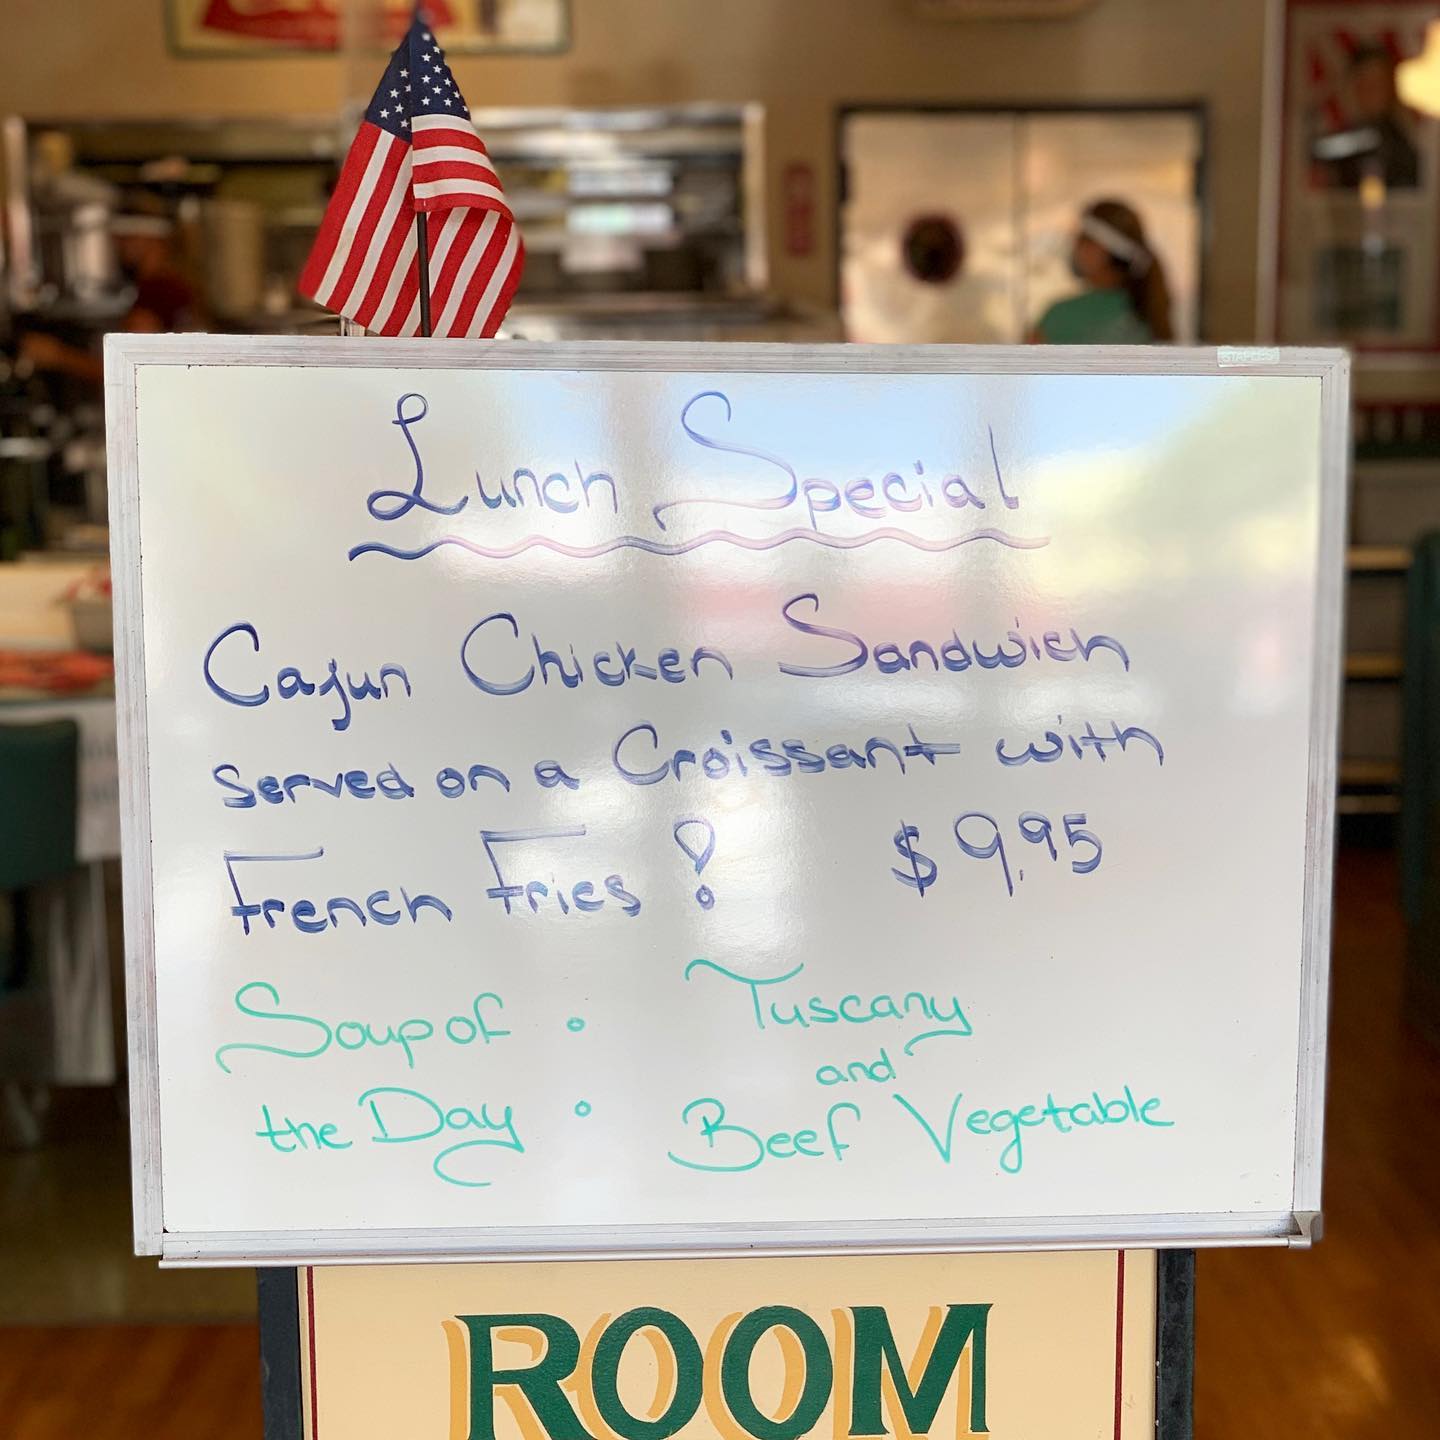 STAPLES
Lunch Special
Cajun Chicken Sandwich
served on a Croissant with
French Fries! $9.95
Soup of : Tuscany
and
the Day : Beef Vegetable
ROOM